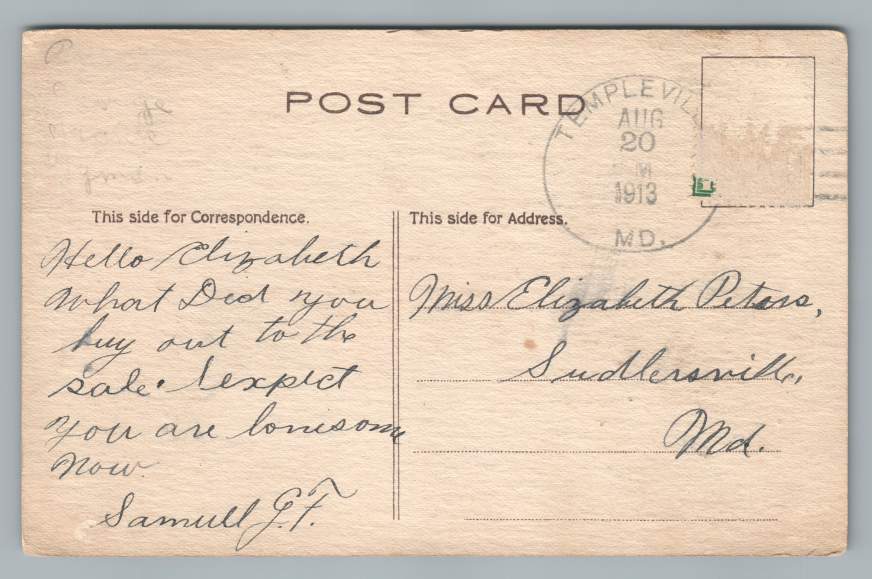 POST CARD
TEMPLEVIL
AUG
20
M
1913
MD.
This side for Correspondence.
This side for Address.
Hello Elizabeth
What Did you
buy out to the
sale. I expect
you are lonesome
now.
Samuell G.F.
Miss Elizabeth Peters,
Sudlersville,
Md.